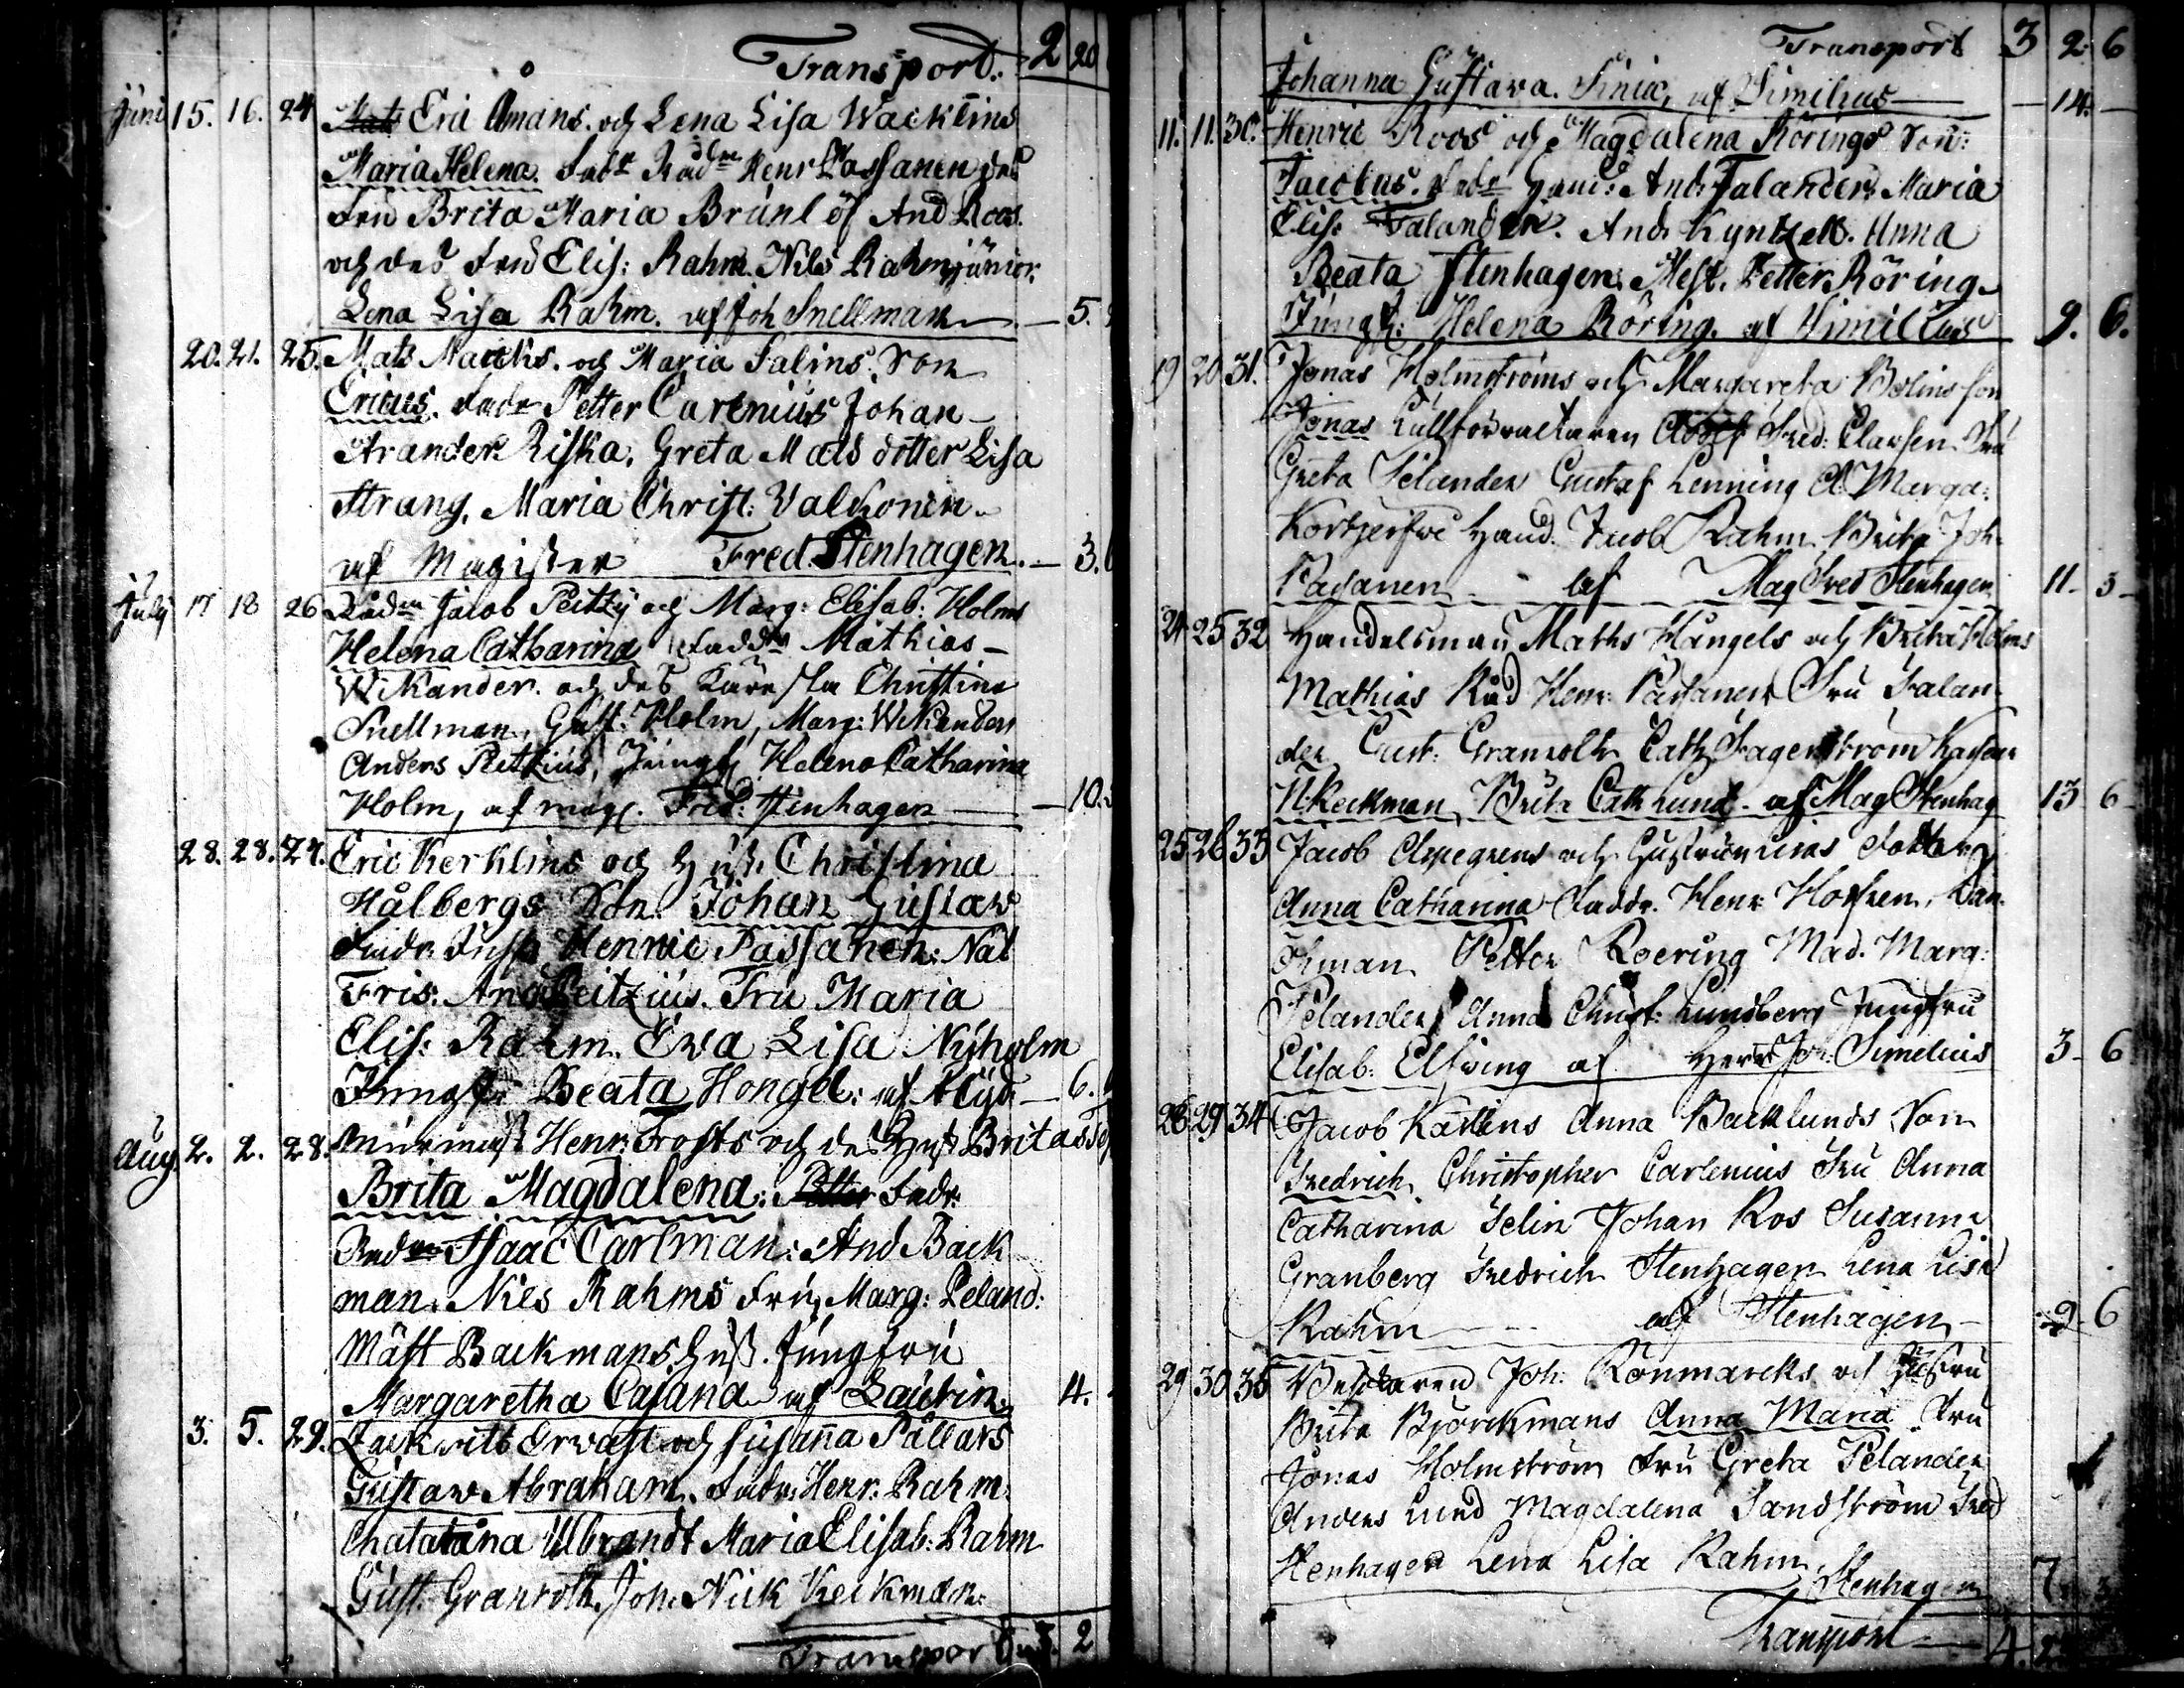 Transport. 2 20
Juni 15. 16. 24 Eric Åmans och Lena Lisa Wacklins
Maria Helena. Fadr Rådm Henr Passanen des
Fru Brita Maria Brunl öf And Roos.
och des Fru Elis: Rahm. Nils Rahm junior.
Lena Lisa Rahm. af Joh Snellman — 5.
20. 21. 25. Mats Matths. och Maria Falins Son
Ericus. Fadr Petter Carlenius Johan
Arander Riska. Greta Mats dotter Lisa
Strang. Maria Christ: Valkonen
af Magister Fred Stenhagen. — 3.
July 17 18 26 Rådm Jacob Peitzij och Marg: Elisab: Holms
Helena Catharina Faddr Mathias
Wikander. och des Käresta Christina
Snellman, Gust. Holm, Marg: Wikander
Anders Peitzius, Jungf Helena Catharina
Holm, af mag. Fred: Stenhagen — 10.
28. 28. 27. Eric Kerklins och Hust. Christina
Hålbergs Son. Johan Gustaw
Fadr. Henric Passanen: Nat
Fris: And Peitzius. Fru Maria
Elis: Rahm. Ewa Lisa Nyholm
Jungfr Beata Hongel: af — 6.
Aug. 2. 2. 28. Murmäst Henr: Frosts och des Hust Brita
Brita Magdalena. Petter Fadr:
Rådm Isaac Carlman: And Back
man. Nils Rahms Fru, Marg: Peland:
Mäst Backmans Hust. Jungfru
Margaretha Cajana af Laurin 4.
3. 5. 29. och Susanna Pållars
Gustaw Abraham. Fadr. Henr: Rahm.
Chatarina Ulbrandt Maria Elisab: Rahm
Gust. Granroth. Joh. Nick Keckman.
Transport 3. 2
Transport 3 2. 6
Johanna Gustava. Simelius — 14. —
11. 11. 30. Henric Roos och Magdalena Rörings Son:
Jacobus. Fadr Hand: And: Falander. Maria
Elis: Falander. And: Kyntzell. Anna
Beata Stenhagen. Mest. Petter Röring.
Jungfr: Helena Röring. af Simelius 9. 6.
19 20 31. Jonas Holmströms och Margareta Bolins son
Jonas Tullförvaltaren Adolf Fred: Clausen. Fru
Greta Pelander Gustaf Lenning Marga:
Hand. Jacob Rahm. Brita Joh
Pasanen af Mag Fred Stenhagen 11. 3
24 25 32 Handelsman Maths Hångels och Brita Holms
Mathias Råd Henr: Passanen Fru Falan
der Gust. Granroth Cath. Fagerström
N. Keckman, Brita Cath Lund. af Mag Stenhag 13 6
25 26 33 Jacob Aspegrens och Hustruns dotter
Anna Catharina Faddr. Henr: Hoffren, Dan.
Öhman Petter Roering Mad. Marg:
Pelander Anna Christ: Lundberg Jungfru
Elisab: Elfving af Herr Joh: Simelius 3 6
28 29 34 Jacob Karlins Anna Backlunds Son
Fredrich Christopher Carlenius Fru Anna
Catharina Selin Johan Ros Susanna
Granberg Fredrich Stenhagen Lena Lisa
Rahm af Stenhagen 9 6
29 30 35 Besökaren Joh: Rönmarcks och Hustru
Brita Björckmans Anna Maria Fru
Jonas Holmström Fru Greta Pelander
Anders Lund Magdalena Sandström Fred
Stenhagen Lena Lisa Rahm, Stenhagen 7 3
Transport 4.